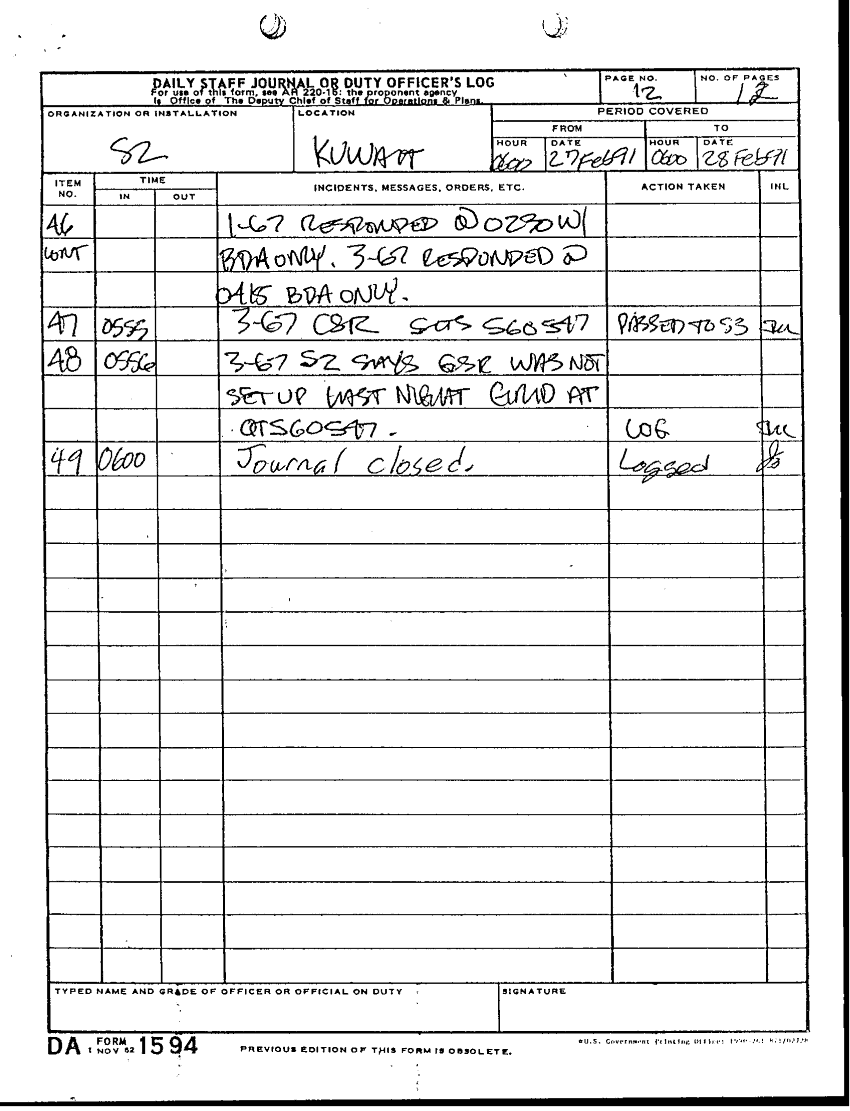 DAILY STAFF JOURNAL OR DUTY OFFICER'S LOG
For use of this form, see AR 220-15; the proponent agency
is Office of The Deputy Chief of Staff for Operations & Plans.
PAGE NO.
12
NO. OF PAGES
12
ORGANIZATION OR INSTALLATION
S2
LOCATION
KUWAIT
PERIOD COVERED
FROM
TO
HOUR
0600
DATE
27 Feb 91
HOUR
0600
DATE
28 Feb 91
ITEM NO.
TIME
IN
OUT
INCIDENTS, MESSAGES, ORDERS, ETC.
ACTION TAKEN
INL
46 1-67 RESPONDED @ 0230 W/
CONT BDA ONLY. 3-67 RESPONDED @
0415 BDA ONLY.
47 0555 3-67 GSR 560547 PASSED TO S3
48 0556 3-67 S2 SAYS GSR WAS NOT
SET UP LAST NIGHT AT
QT560547. LOG
49 0600 Journal closed. Logged
TYPED NAME AND GRADE OF OFFICER OR OFFICIAL ON DUTY
SIGNATURE
DA FORM 1 NOV 62 1594
PREVIOUS EDITION OF THIS FORM IS OBSOLETE.
*U.S. Government Printing Office: